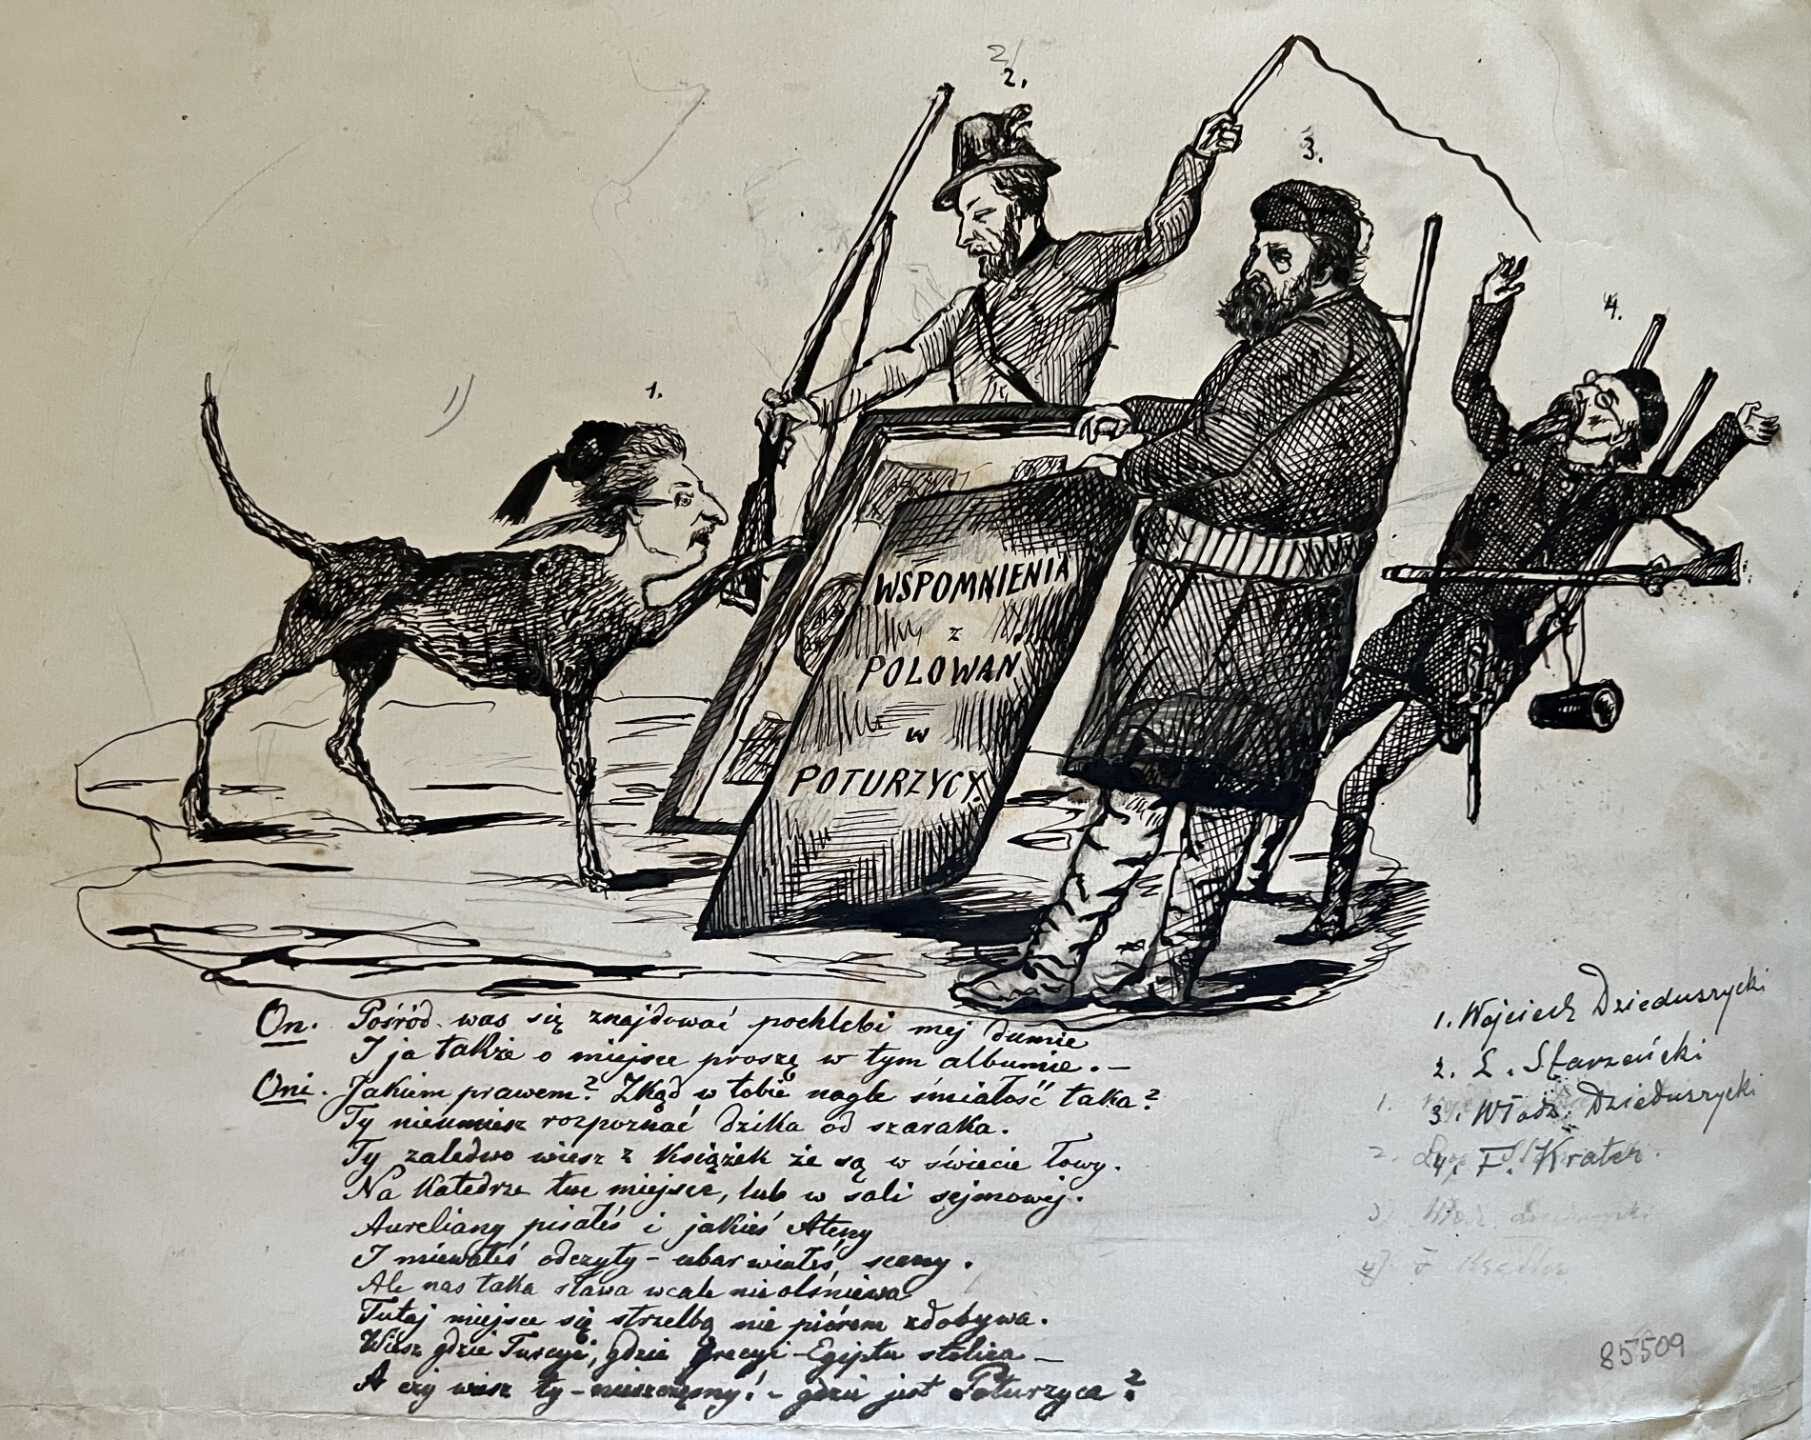 2/
2.
3.
4.
1.
1)
WSPOMNIENIA
z
POLOWAN
w
POTURZYCY.
On. Pośród was się znajdować pochlebi mej dumie
I ja także o miejsce proszę w tym albumie. –
Oni. Jakiem prawem? Zkąd w tobie nagle śmiałość taka?
Ty nieumiesz rozpoznać dzika od szaraka.
Ty zaledwo wiesz z książek że są w świecie łowy.
Na katedrze twe miejsce, lub w sali sejmowej.
Aureliany pisałeś i jakieś Ateny
I miewałeś odczyty – ubarwiałeś sceny.
Ale nas taka sława wcale nie olśniewa
Tutaj miejsce się strzelbą nie piórem zdobywa.
Wiesz gdzie Turcyi, gdzie Grecyi – Egiptu stolica –
A czy wiesz ty – nieszczęsny! – gdzie jest Poturzyca?
1. Wojciech Dzieduszycki
2. L. Starzeński
3. Włodz. Dzieduszycki
4. F. Krater.
1.
2.
3)
4) F
85509